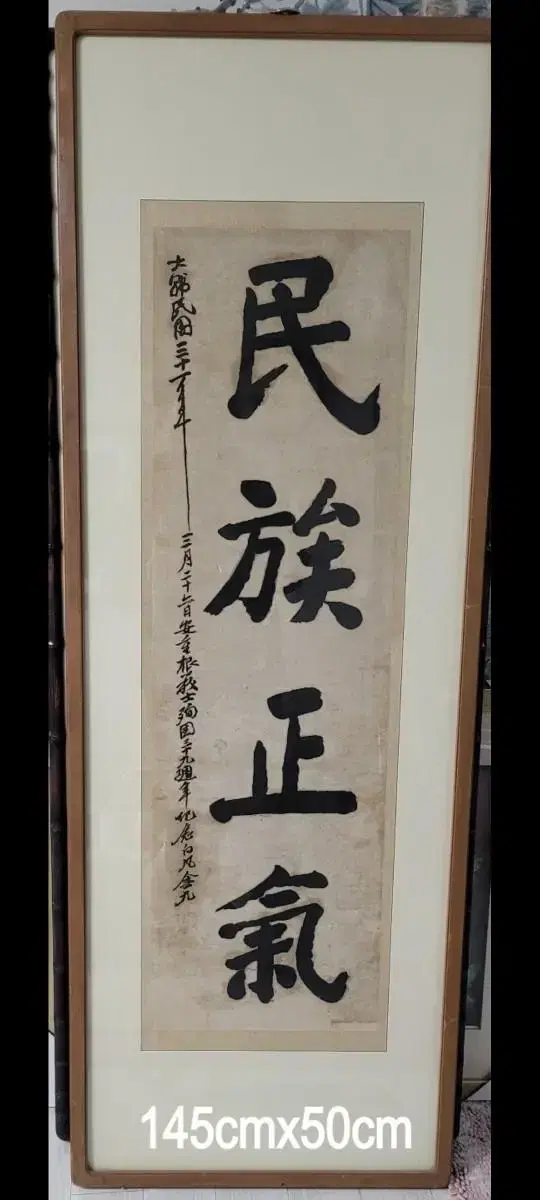 民族正氣
大韓民国三十一年三月二十六日安重根義士殉国三十九週年紀念白凡金九
145cmx50cm